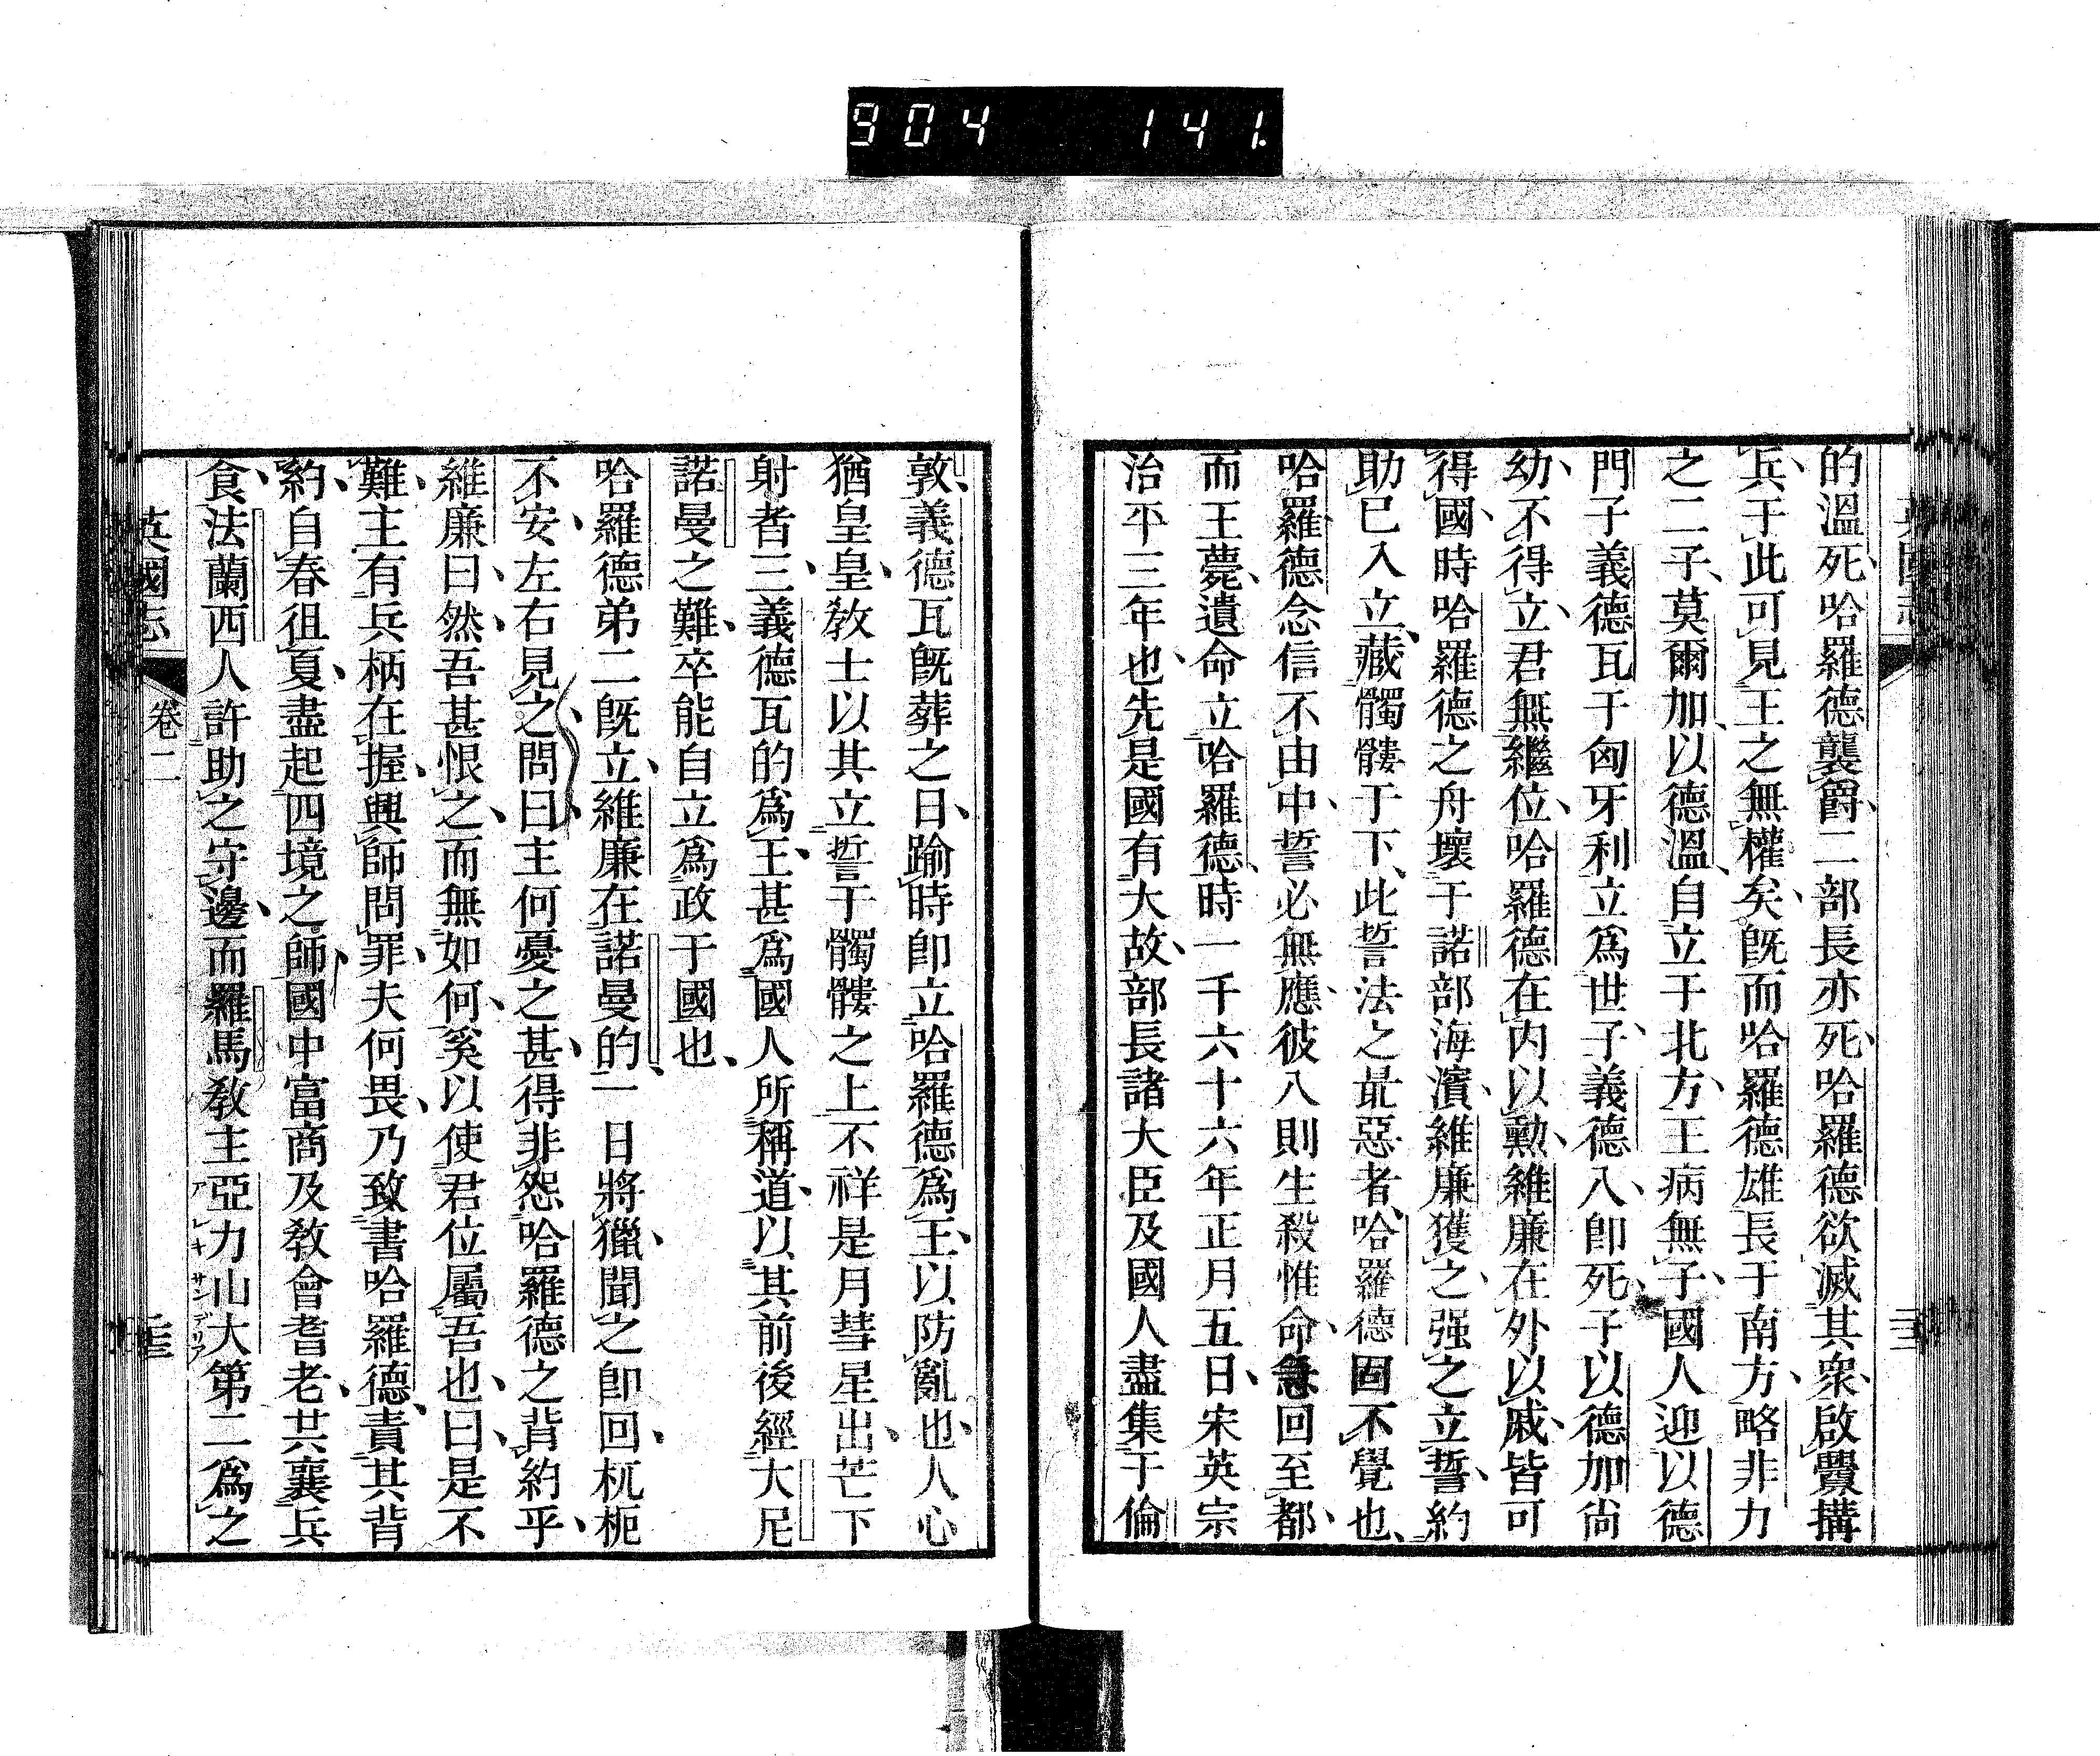 904 141.
的溫死、哈羅德襲爵、二部長亦死、哈羅德欲滅其衆、啟釁搆
兵、于此可見王之無權矣、旣而哈羅德雄長于南方、略非力
之二子、莫爾加、以德溫、自立于北方、王病無子、國人迎以德
門子義德瓦于匈牙利立爲世子、子義德入、卽死、子以德加尙
幼、不得立、君無繼位、哈羅德在內以勳、維廉在外以戚、皆可
得國、時哈羅德之舟壞于諾部海濱、維廉獲之、强之立誓、約
助已入立、藏髑髏于下、此誓法之最惡者、哈羅德固不覺也、
哈羅德念信不由中、誓必無應、彼入則生殺惟命、急回至都、
而王薨、遺命立哈羅德、時一千六十六年正月五日、宋英宗
治平三年也、先是國有大故、部長諸大臣及國人盡集于倫
敦、義德瓦旣葬之日、踰時卽立哈羅德爲王、以防亂也、人心
猶皇皇、敎士以其立誓于髑髏之上不祥是月彗星出、芒下
射者三、義德瓦的爲王、甚爲國人所稱道、以其前後經大尼
諾曼之難、卒能自立爲政于國也、
哈羅德弟二旣立、維廉在諾曼的、一日將獵、聞之卽回、杌柅
不安、左右見之、問曰、主何憂之甚、得非怨哈羅德之背約乎、
維廉曰、然、吾甚恨之、而無如何、奚以使君位屬吾也、曰、是不
難、主有兵柄在握、興師問罪、夫何畏、乃致書哈羅德、責其背
約、自春徂夏、盡起四境之師、國中富商及敎會耆老、共襄兵
食、法蘭西人許助之守邊、而羅馬敎主亞力山大第二爲之
アレキサンデリア
英國志 卷二